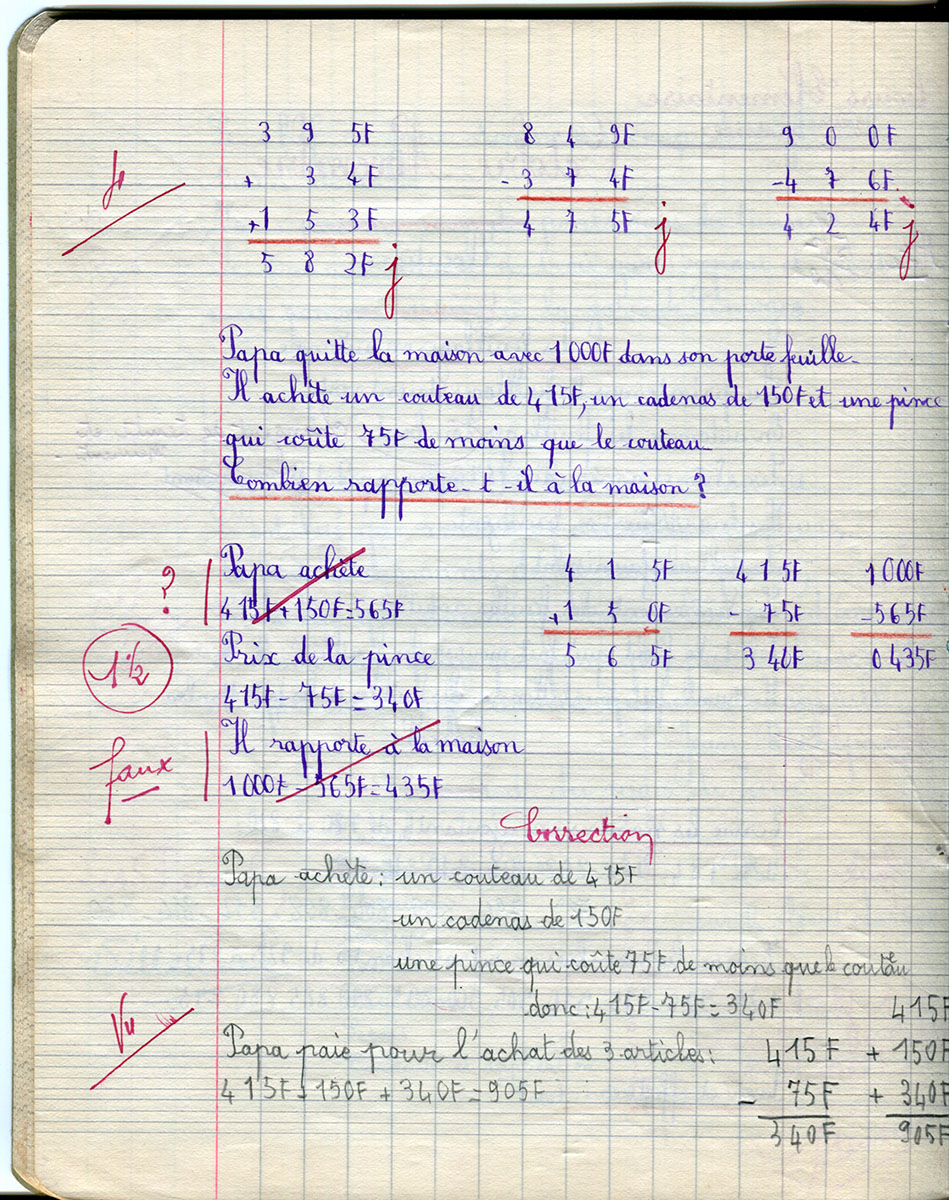 3 9 5F 8 4 9F 9 0 0F
+ 3 4F - 3 7 4F - 4 7 6F
+1 5 3F 4 7 5F j 4 2 4F j
5 8 2F j
Papa quitte la maison avec 1000F dans son porte feuille.
Il achète un couteau de 415F, un cadenas de 150F et une pince
qui coûte 75F de moins que le couteau
Combien rapporte-t-il à la maison ?
Papa achète 4 1 5F 415F 1000F
? 415F+150F=565F +1 5 0F - 75F -565F
Prix de la pince 5 6 5F 340F 0435F
1 1/2
415F- 75F=340F
Il rapporte à la maison
faux
1000F-565F=435F
Correction
Papa achète: un couteau de 415F
un cadenas de 150F
une pince qui coûte 75F de moins que le couteau
donc: 415F-75F=340F 415F
Vu
Papa paie pour l'achat des 3 articles: 415F + 150F
415F+150F + 340F=905F - 75F + 340F
340F 905F